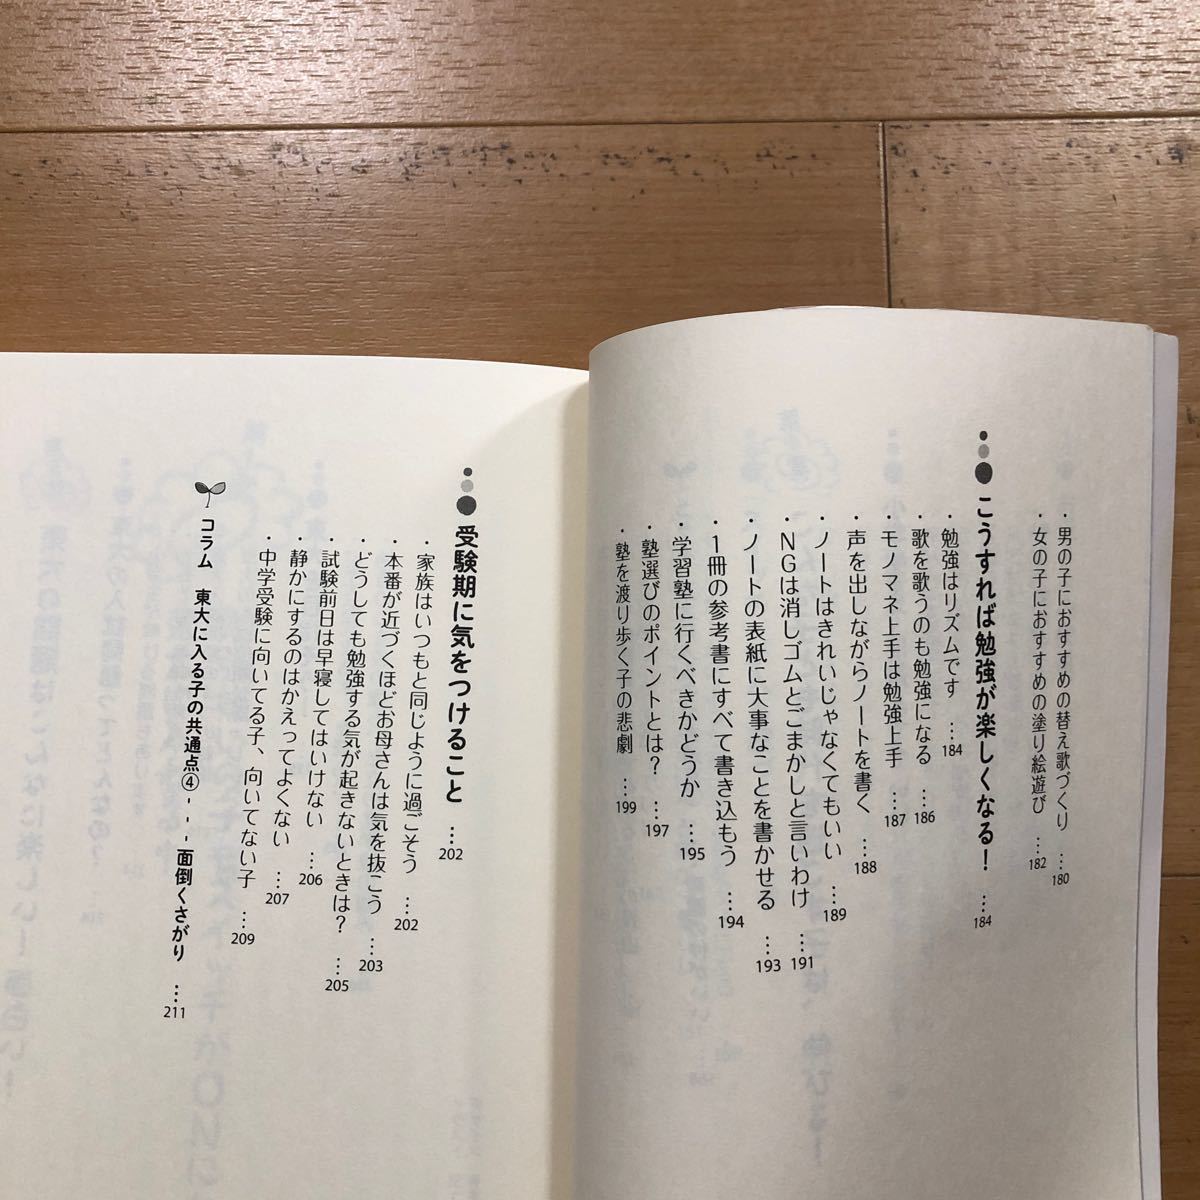 ・男の子におすすめの替え歌づくり …180
・女の子におすすめの塗り絵遊び …182
こうすれば勉強が楽しくなる！ …184
・勉強はリズムです …184
・歌を歌うのも勉強になる …186
・モノマネ上手は勉強上手 …187
・声を出しながらノートを書く …188
・ノートはきれいじゃなくてもいい …189
・NGは消しゴムとごまかしと言いわけ …191
・ノートの表紙に大事なことを書かせる …193
・1冊の参考書にすべて書き込もう …194
・学習塾に行くべきかどうか …195
・塾選びのポイントとは？ …197
・塾を渡り歩く子の悲劇 …199
受験期に気をつけること …202
・家族はいつもと同じように過ごそう …202
・本番が近づくほどお母さんは気を抜こう …203
・どうしても勉強する気が起きないときは？ …205
・試験前日は早寝してはいけない …206
・静かにするのはかえってよくない …207
・中学受験に向いてる子、向いてない子 …209
コラム 東大に入る子の共通点④---面倒くさがり …211